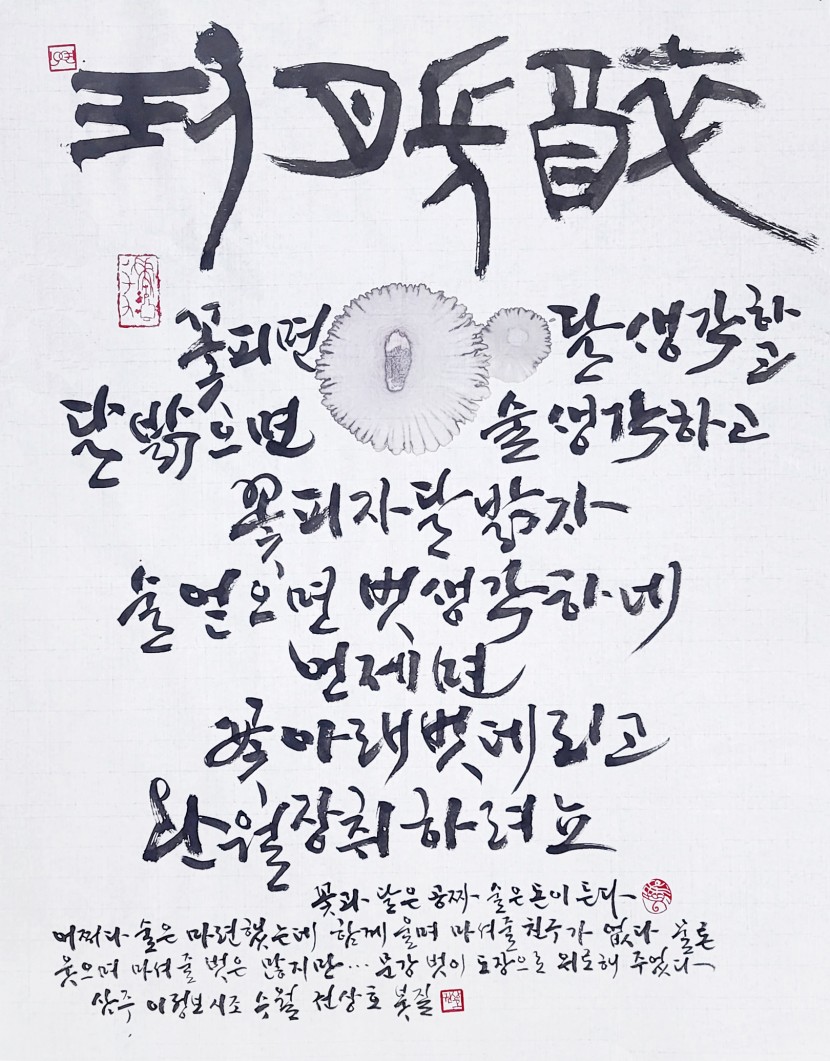 玩月長醉
꽃피면 달 생각하고
달 밝으면 술 생각하고
꽃 피자 달 밝자
술 얻으면 벗 생각하네
언제면
꽃 아래 벗 데리고
완월장취하려뇨
꽃과 달은 공짜 술은 돈이 든다
어쩌다 술은 마련했는데 함께 울며 마셔줄 친구가 없다 물론
웃으며 마셔줄 벗은 많지만… 문강 벗이 도장으로 위로해 주었다
삼주 이정보 시조 수월 권상호 붓질